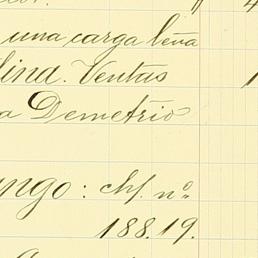 una carga leña
lina. Ventas
a Demetrio
ngo: ch/. nº
188.19.